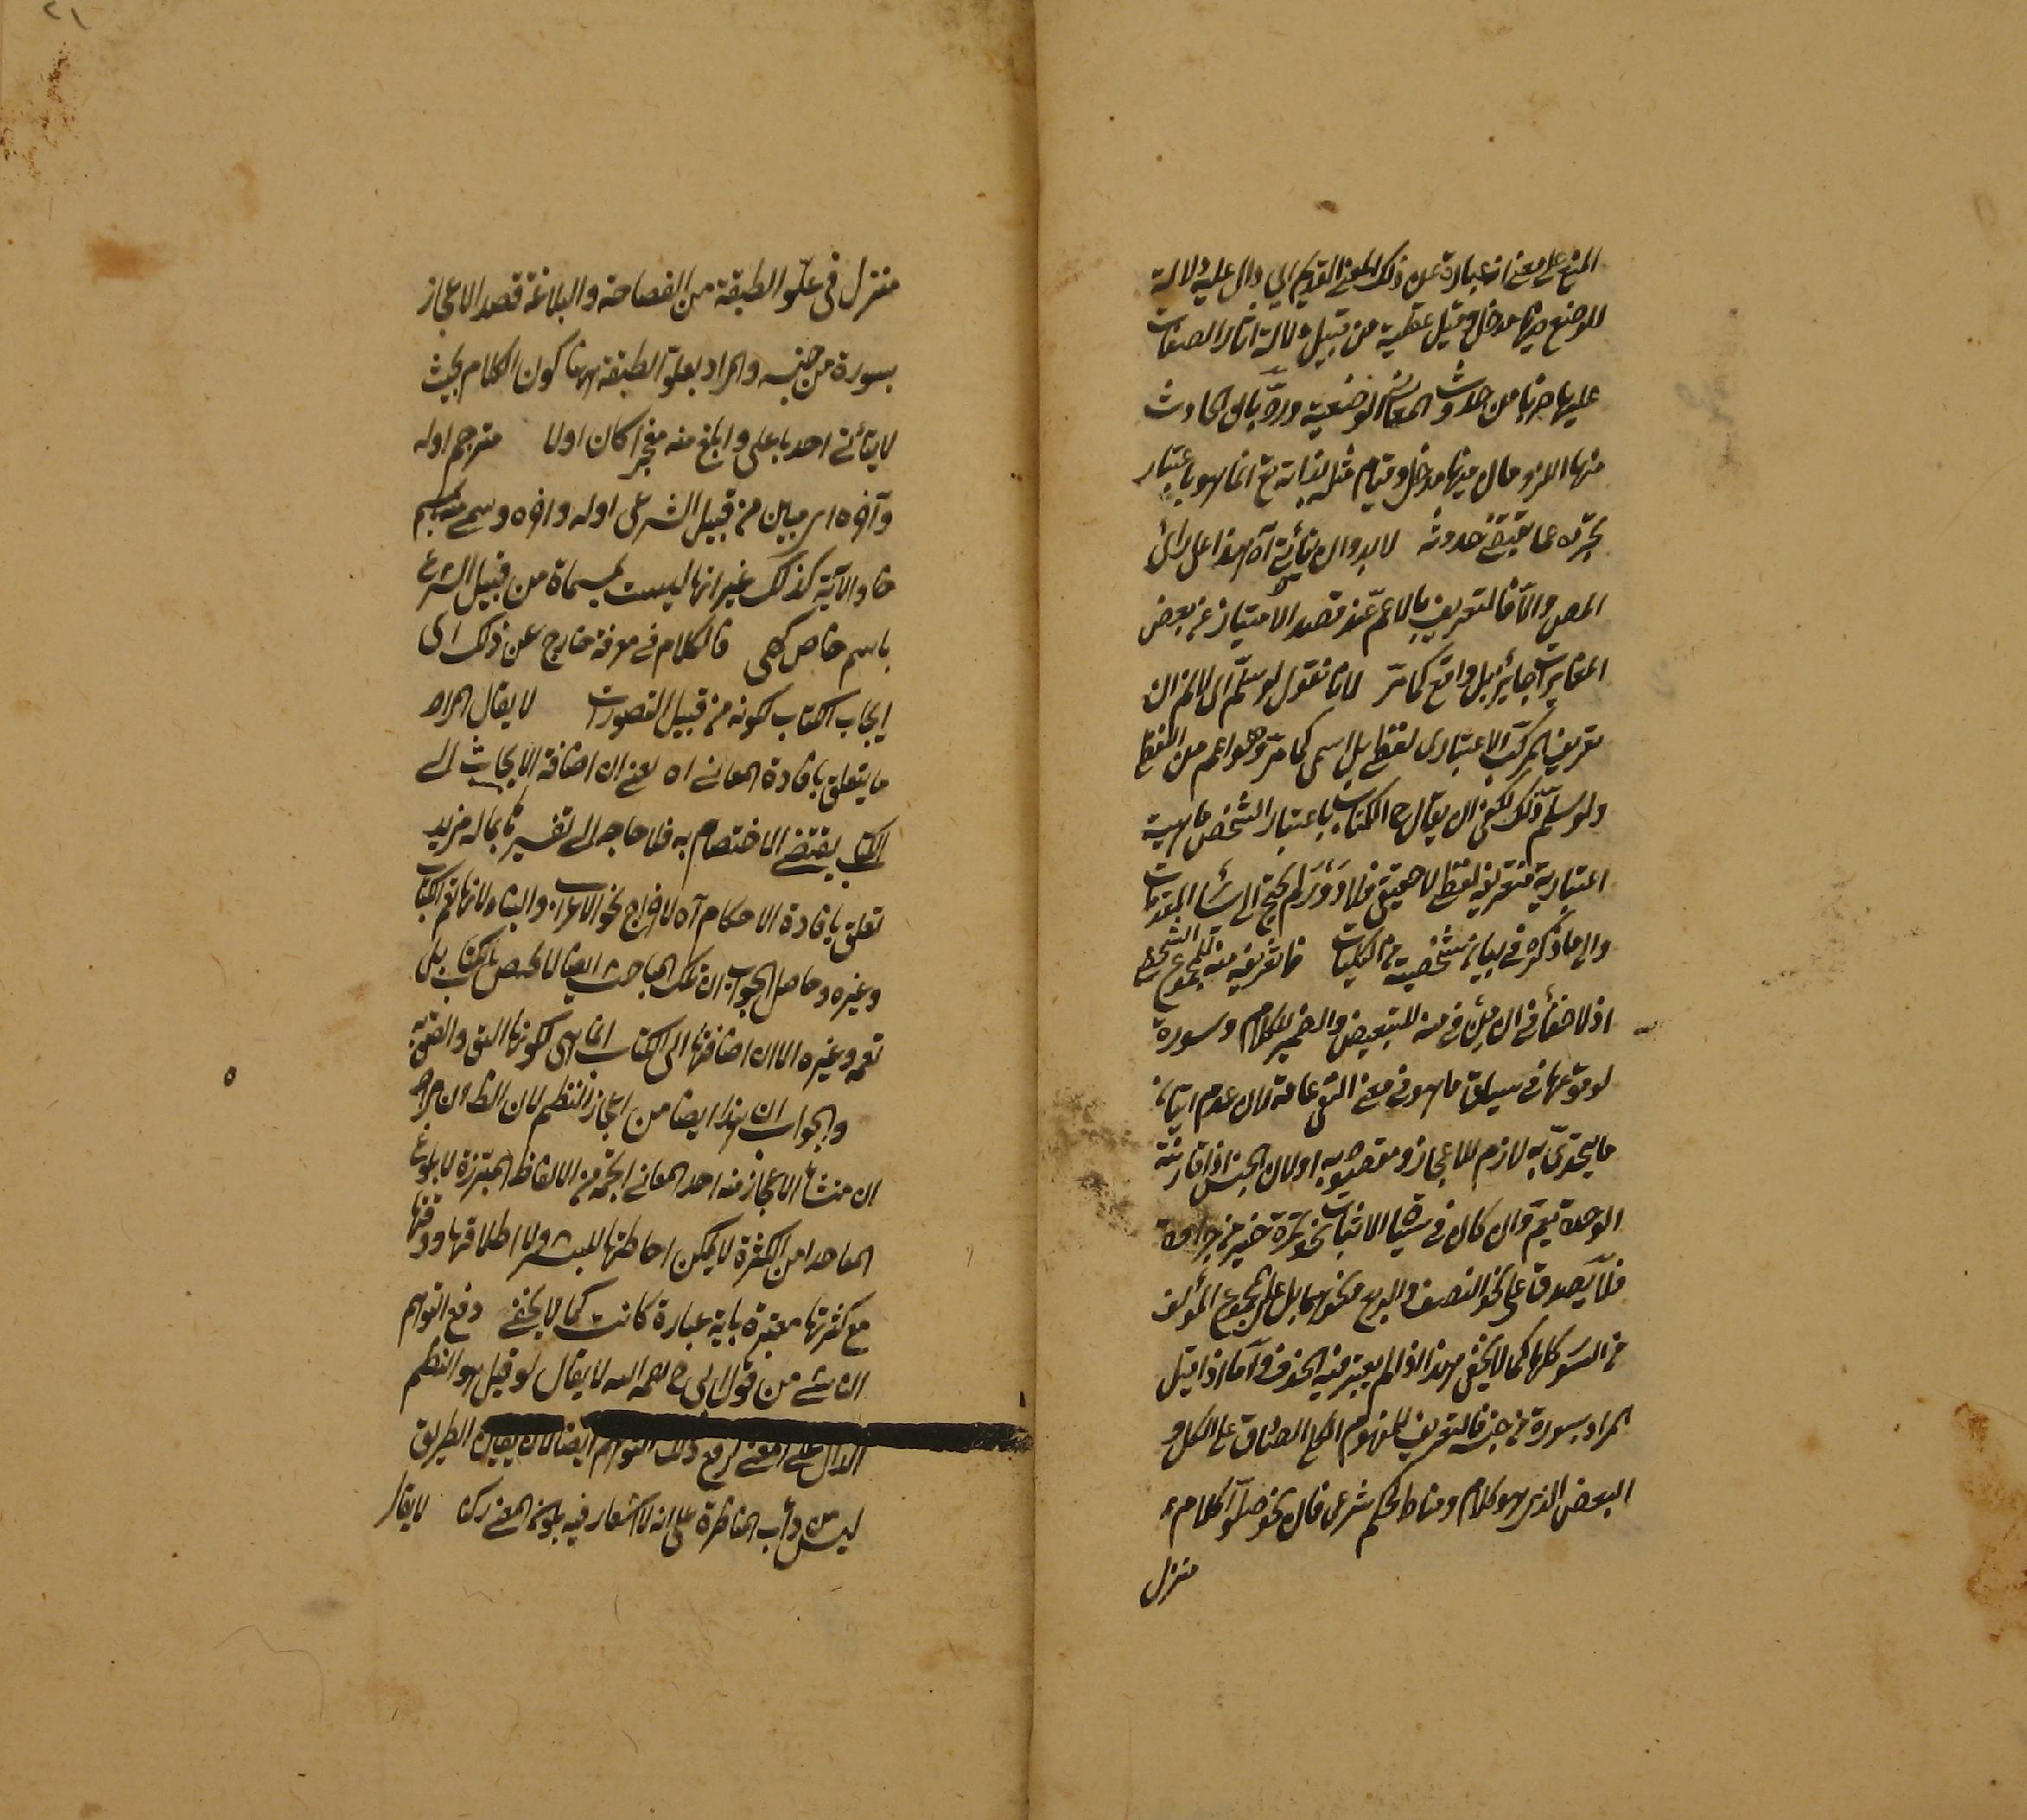 المنع على معنى انه عبارة عن ذلك المعنى القديم اي دال عليه دلالة
للوضع فيها مدخل وقيل عقلية من قبيل دلالة اثار الصفات
عليها هربا من حدوث المعاني الوضعية ورد بان الحادث
منها المازومان فيها مدخل وقيام مثله بذاته تع انما هو باعتبار
تجرده عما يقتضي حدوثه لا بد وان يتأتى آه هذا على رأى
المص والا فالتعريف بالاعم عند قصد الامتياز عن بعض
المغايرات جائز بل واقع كما مر لانا نقول لو سلم اى لا نم ان
تعريف المركب الاعتبارى لفظى بل اسمى كما مر وهو اعم من اللفظى
ولو سلم ذلك لكفى ان يقال ح الكتاب باعتبار الشخص ماهية
اعتبارية فتعريفه لفظى لا حقيقى فلا دور ولم يحتج الى سائر المقدمات
والى ما ذكره فى بيان تشخصية من الكليات فا تعريف منه للمجموع الشخصى
اذ لا خفأ فى ان من فى منه للتبعيض والضمير للكلام وسورة
لوقوعها فى سياق ما هو فى معنى النفى عامة لان عدم اتيان
ما يتحدى به لازم للاعجاز ومقصود به اولان الجنس اذا قارنته
الوحدة يعم وان كان فى سياق الاثبات نحو تمرة خير من جرادة
فلا يصدق على نحو النصف والربع ونحوهما بل على مجموع المؤلف
من السور كلها كما لا يخفى هذا اذا لم يعتبر فيه الحذف وآما اذا قيل
المراد بسورة من جنسه فالتعريف للمفهوم الكلى الصادق على الكل و
البعض الذى هو كلام ومناط لحكم شرعى فان نحو صلوا كلام
منزل
منزل فى علو الطبقة من الفصاحة والبلاغة قصد الاعجاز
بسورة من جنسه والمراد بعلو الطبقة ههنا كون الكلام بحيث
لا يتأتى احد باعلى وابلغ منه معجزا كان اولا مترجم اوله
وآخره اى مبين من قبيل الشرعى اوله واخره وسمى منه باسم
خا والآية كذلك غير انها ليست بمسماة من قبيل الشرع
باسم خاص كهى فالكلام فى معرفة خارج عن ذلك اى
ابحاث الكتاب لكونه من قبيل التصورات لا يقال المراد
ما يتعلق بافادة المعانى اه يعنى ان اضافة الابحاث الى
الكتاب يقتضى الاختصاص به فلا حاجة الى تفسيرنا بما له مزيد
تعلق بافادة الاحكام آه لاخراج نحو الاعراب والبناء لانها تعم الكتاب
وغيره وحاصل الجواب ان تلك المباحث ايضا لا تختص بالكتاب بل
تعمه وغيره الا ان اضافتها الى الكتاب انما هى لكونها اليق والصق به
والجواب ان هذا ايضا من اعجاز النظم لان الظ ان مراد
ان منشأ الاعجاز منه احد المعانى الجمة من الالفاظ المبتزة لا بلوغ
المعا حدا من الكثرة لا يمكن احاطتها للبشر ولا اطلاقها ودقتها
مع كثرتها معتبرة باية عبارة كانت كما لا يخفى دفع التوهم
الناشى من قول ابى ح رحمه الله لا يقال لو قيل هو النظم
الدال على المعنى لرفع ذلك التوهم ايضا لانا نقول الطريق
ليس من دأب المناظرة على انه لا اشعار فيه بكون المعنى ركنا لا يقال